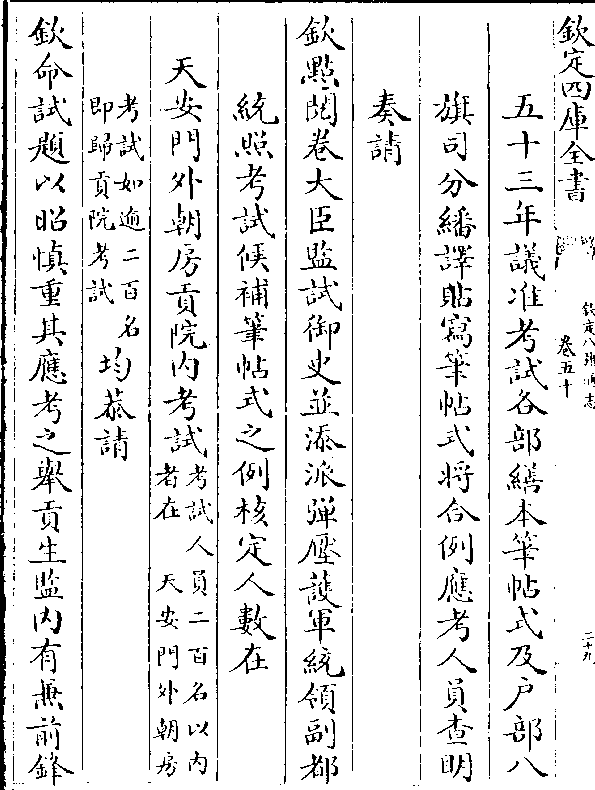 欽定四庫全書
欽定八旗通志
卷五十
二十九
五十三年議准考試各部繕本筆帖式及户部八
旗司分繙譯貼寫筆帖式將合例應考人員查明
奏請
欽點閱卷大臣監試御史並添派彈壓護軍統領副都
統照考試候補筆帖式之例核定人數在
天安門外朝房貢院內考試考試人員二百名以內者在天安門外朝房
考試如逾二百名即歸貢院考試均恭請
欽命試題以昭慎重其應考之舉貢生監內有兼前鋒